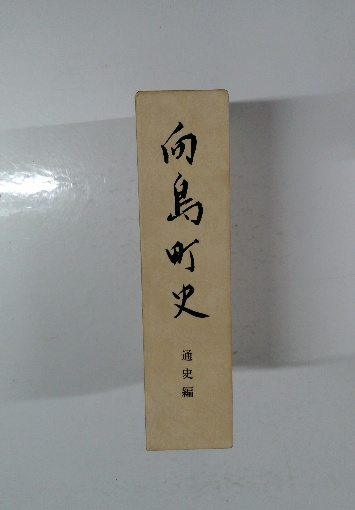 向島町史
通史編